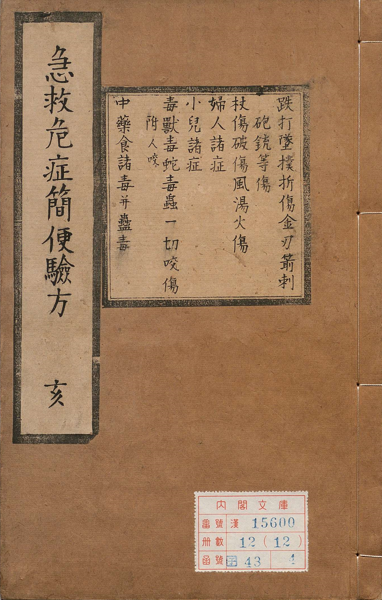 急救危症簡便驗方 亥
跌打墜撲折傷金刃箭刺
砲銃等傷
杖傷破傷風湯火傷
婦人諸症
小兒諸症
毒獸毒蛇毒蟲一切咬傷
附人咬
中藥食諸毒并蠱毒
内閣文庫
番號 漢 15600
冊數 12(12)
函號 43 4